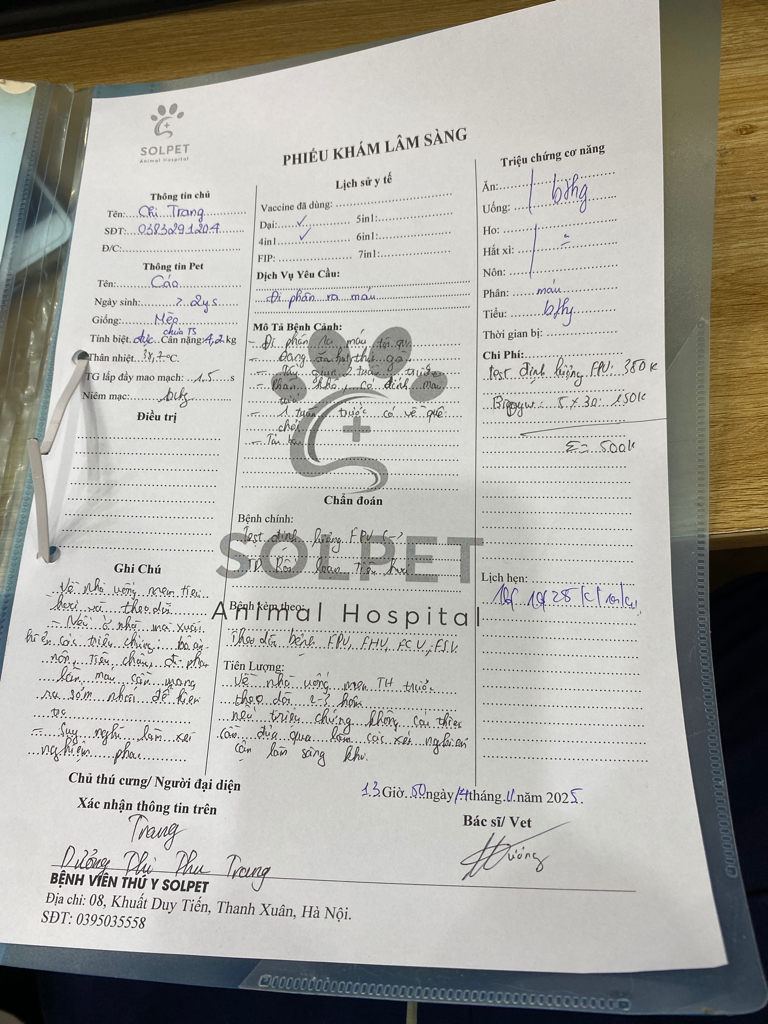 SOLPET
Animal Hospital
PHIẾU KHÁM LÂM SÀNG
Thông tin chủ
Tên: Chị Trang
SĐT: 0383291204
Đ/C:
Thông tin Pet
Tên: Cáo
Ngày sinh: > 2ys
Giống: Mèo
chưa TS
Tính biệt: đực Cân nặng: 4,2 kg
Thân nhiệt: 38,7 °C
TG lấp đầy mao mạch: 1,5 s
Niêm mạc: bthg
Điều trị
Ghi Chú
Về nhà uống men tiêu
hoá và theo dõi
- Nếu ở nhà mà xuất
hiện các triệu chứng bỏ ăn
nôn, tiêu chảy, đi phân
lẫn máu cần mang
ra sớm nhất để kiểm
tra
- Suy nghĩ làm xét
nghiệm phân
Lịch sử y tế
Vaccine đã dùng:
Dại: ✓ 5in1:
4in1 ✓ 6in1:
FIP: 7in1:
Dịch Vụ Yêu Cầu:
Đi phân ra máu
Mô Tả Bệnh Cảnh:
- Đi phân ra máu
- Đang ăn hạt, thịt gà
- Tẩy giun 2 tuần trước
- Phân khô, có dính máu
- 1 tuần trước có về quê
chơi
Chẩn đoán
Bệnh chính:
Test định lượng FPV (-)
TD Rối loạn tiêu hoá
Bệnh kèm theo:
Theo dõi bệnh FPV, FHV, FCV,
Tiên Lượng:
Về nhà uống men TH trước
theo dõi 2-3 hôm
nếu triệu chứng không cải thiện
cần đưa qua làm các xét nghiệm
cận lâm sàng khác
Triệu chứng cơ năng
Ăn:
Uống: bthg
Ho:
Hắt xì: -
Nôn:
Phân: máu
Tiểu: bthg
Thời gian bị:
Chi Phí:
test định lượng FPV: 350k
5 x 30: 150k
Σ = 500k
Lịch hẹn:
SOLPET
Animal Hospital
Chủ thú cưng/ Người đại diện
Xác nhận thông tin trên
Trang
Dương Thị Thu Trang
13 Giờ 50 ngày 14 tháng 11 năm 2025.
Bác sĩ/ Vet
Hương
BỆNH VIỆN THÚ Y SOLPET
Địa chỉ: 08, Khuất Duy Tiến, Thanh Xuân, Hà Nội.
SĐT: 0395035558